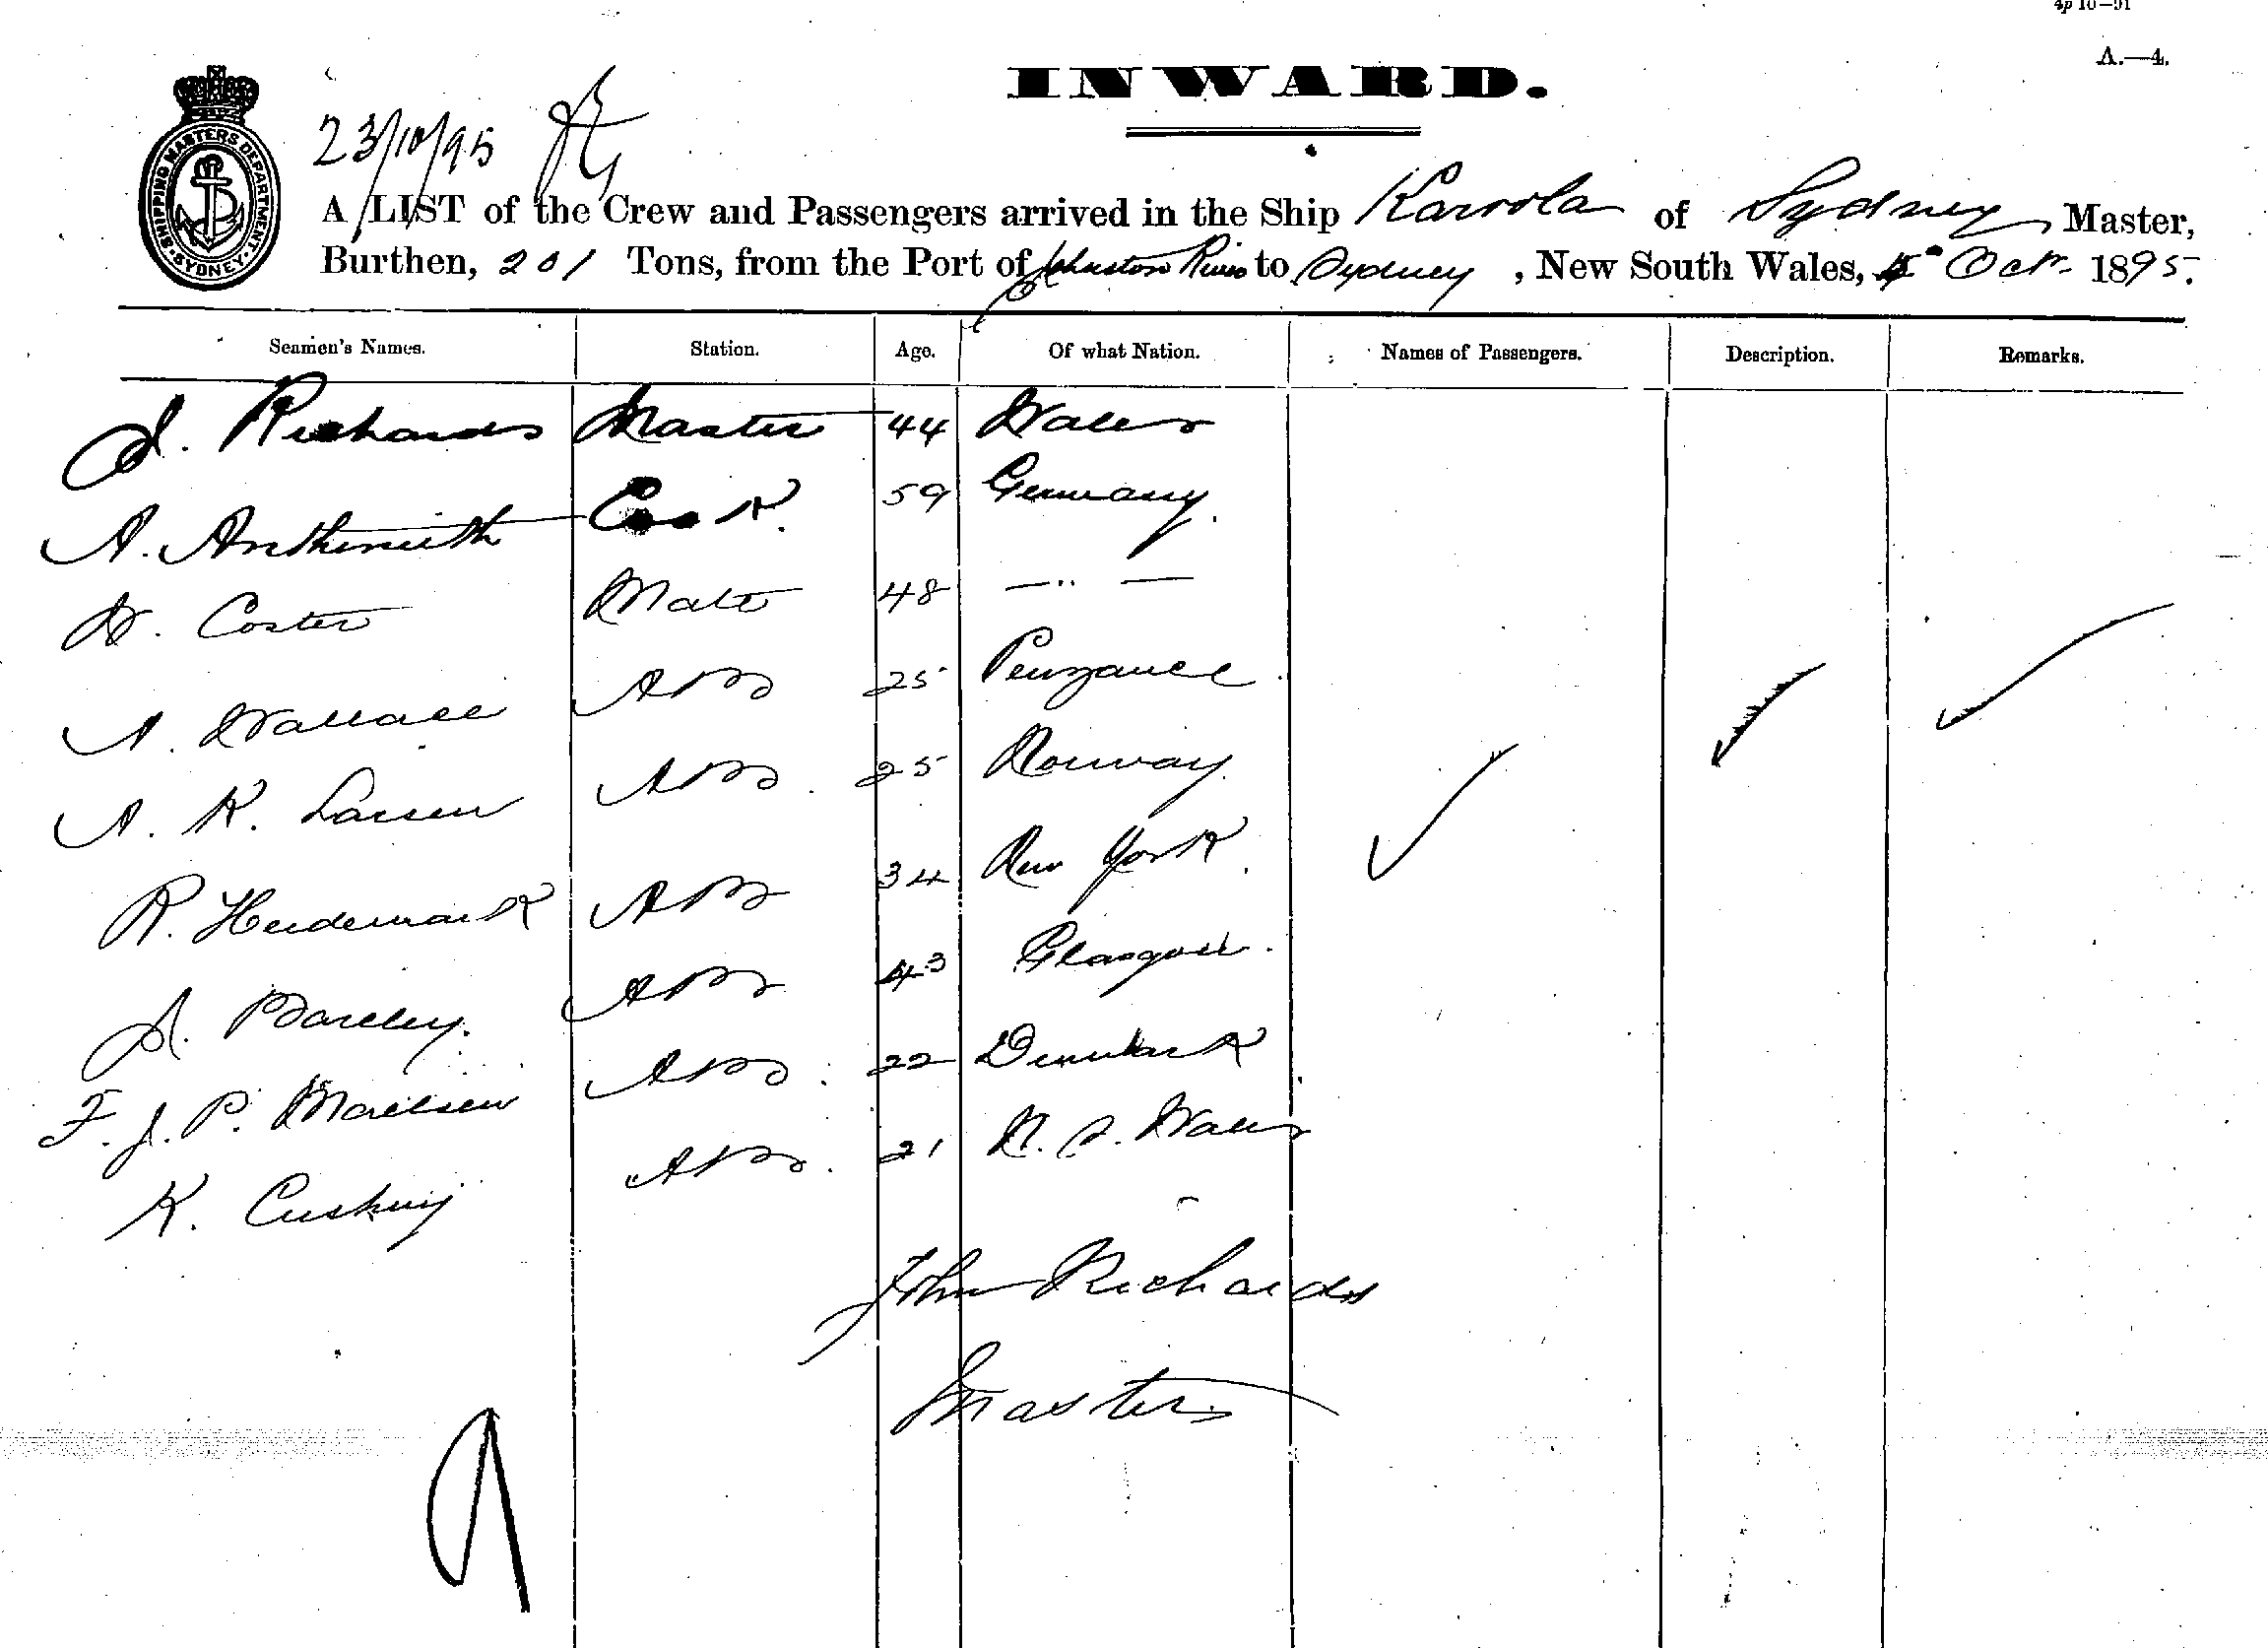 4p 10—91
A.—4.
INWARD.
SHIPPING MASTERS DEPARTMENT SYDNEY
23/10/95
A LIST of the Crew and Passengers arrived in the Ship Karoola of Sydney Master,
Burthen, 201 Tons, from the Port of Johnston River to Sydney, New South Wales, Oct. 1895.
Seamen's Names. Station. Age. Of what Nation. Names of Passengers. Description. Remarks.
J. Richards Master 44 Wales
A. Cook 59 Germany.
W. Coster Mate 48 — " —
A. Wallace AB 25 Penzance.
A. K. Larsen AB. 25 Norway
R. Heidemark AB 34 New York.
J. Barcley. AB 43 Glasgow.
F. J. P. AB. 22 Denmark
K. Cushing AB. 21 N. S. Wales
John Richards
Master
9